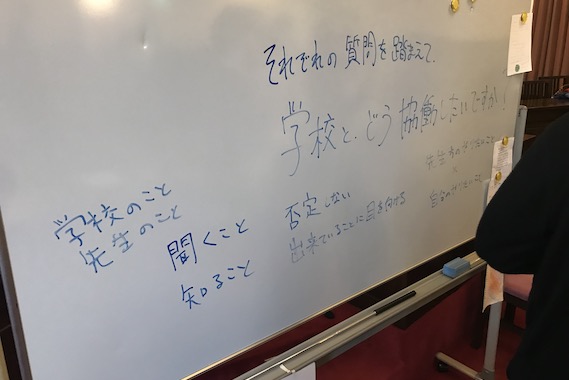 それぞれの質問を踏まえて、
学校と、どう協働したいですか!
学校のこと
先生のこと
聞くこと
知ること
否定しない
出来ていることに目を付ける
先生方のやりたいこと
自分のやりたいこと